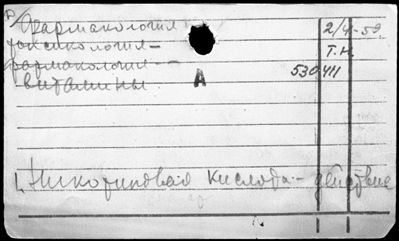 Фармакология 2/4-59
токсикология - Т.Н.
фармакология - 530411
витамины А
1. Никотиновая кислота - действие